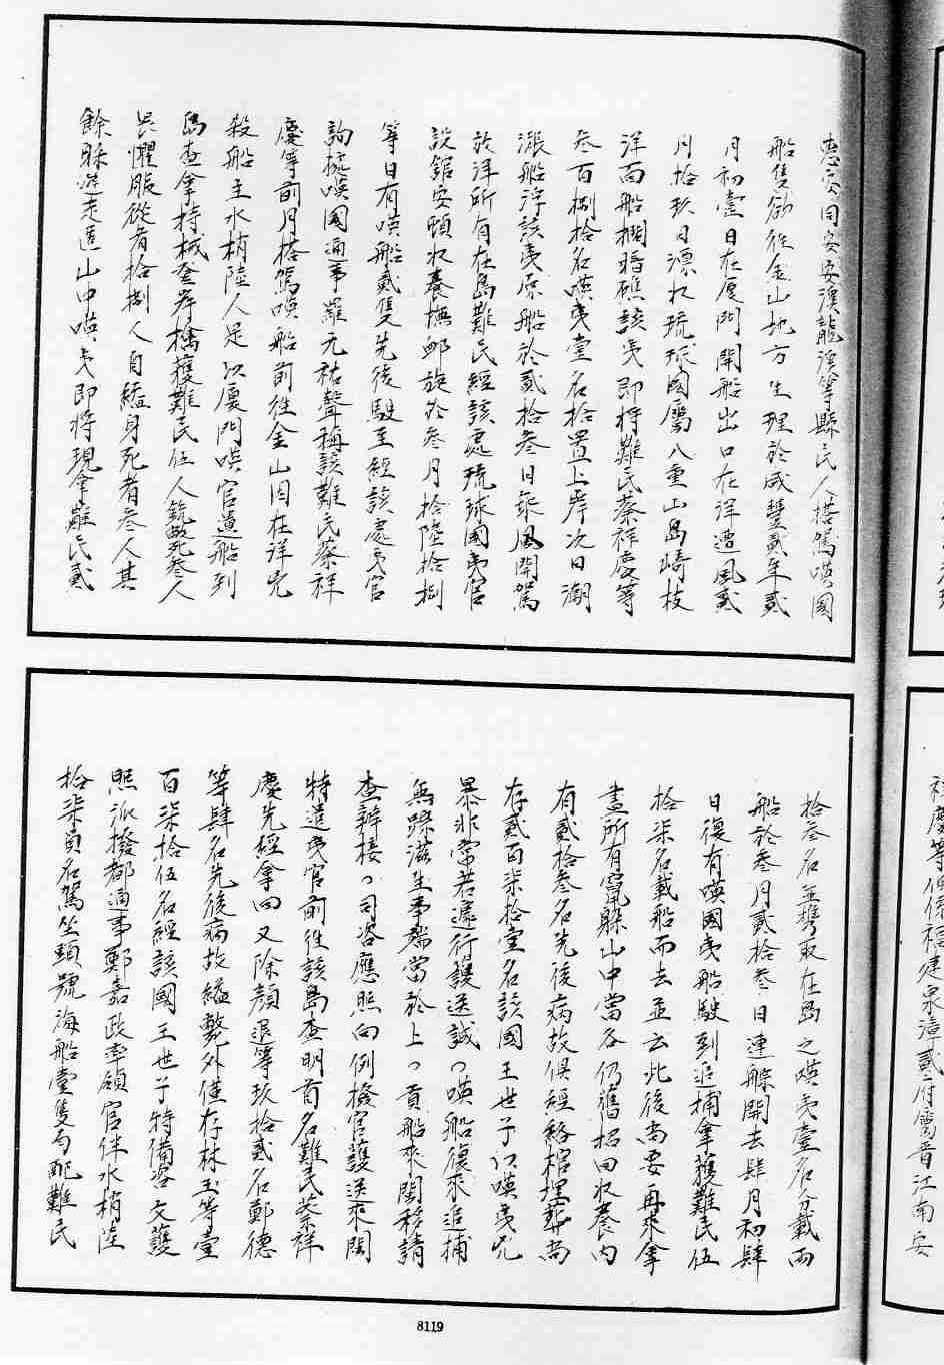 惠安同安安溪龍溪等縣民人搭駕嘆國
船隻欲往金山地方生理於咸豐貳年貳
月初壹日在厦門開船出口在洋遭風貳
月拾玖日漂收琉球國屬八重山島崎枝
洋面船擱暗礁該夷即將難民蔡祥慶等
叁百捌拾名嘆夷壹名拾置上岸次日潮
漲船浮該夷原船於貳拾叁日乘風開駕
放洋所有在島難民經該處琉球國夷官
設館安頓收養撫卹旋於叁月拾陸拾捌
等日有嘆船貳隻先後駛至經該處夷官
詢據嘆國通事羅元祐聲稱該難民蔡祥
慶等前月搭駕嘆船前往金山因在洋兇
殺船主水梢陸人是以厦門嘆官遣船到
島查拿持械登岸擒獲難民伍人銃斃叁人
畏懼服從者拾捌人自縊身死者叁人其
餘躲避走匿山中嘆夷即將現拿難民貳
拾叁名並携取在島之嘆夷壹名分載兩
船於叁月貳拾叁日連䑸開去肆月初肆
日復有嘆國夷船駛到追捕拿獲難民伍
拾柒名載船而去並云此後尚要再來拿
盡所有竄躲山中當各仍舊招回收養内
有貳拾叁名先後病故俱經給棺埋葬尚
存貳百柒拾壹名該國王世子以嘆夷兇
暴非常若遽行護送誠〻嘆船復來追捕
無踪滋生事端當於上〻貢船來閩移請
查辦接〻司咨應照向例撥官護送來閩
特遣夷官前往該島查明前名難民蔡祥
慶先經拿回又除顏退等玖拾貳名鄭德
等肆名先後病故縊斃外僅存林玉等壹
百柒拾伍名經該國王世子特備咨文護
照派撥都通事鄭嘉政率領官伴水梢陸
拾柒員名駕坐頭號海船壹隻勻配難民
祥慶等俱係福建泉漳貳府屬晋江南安
8119